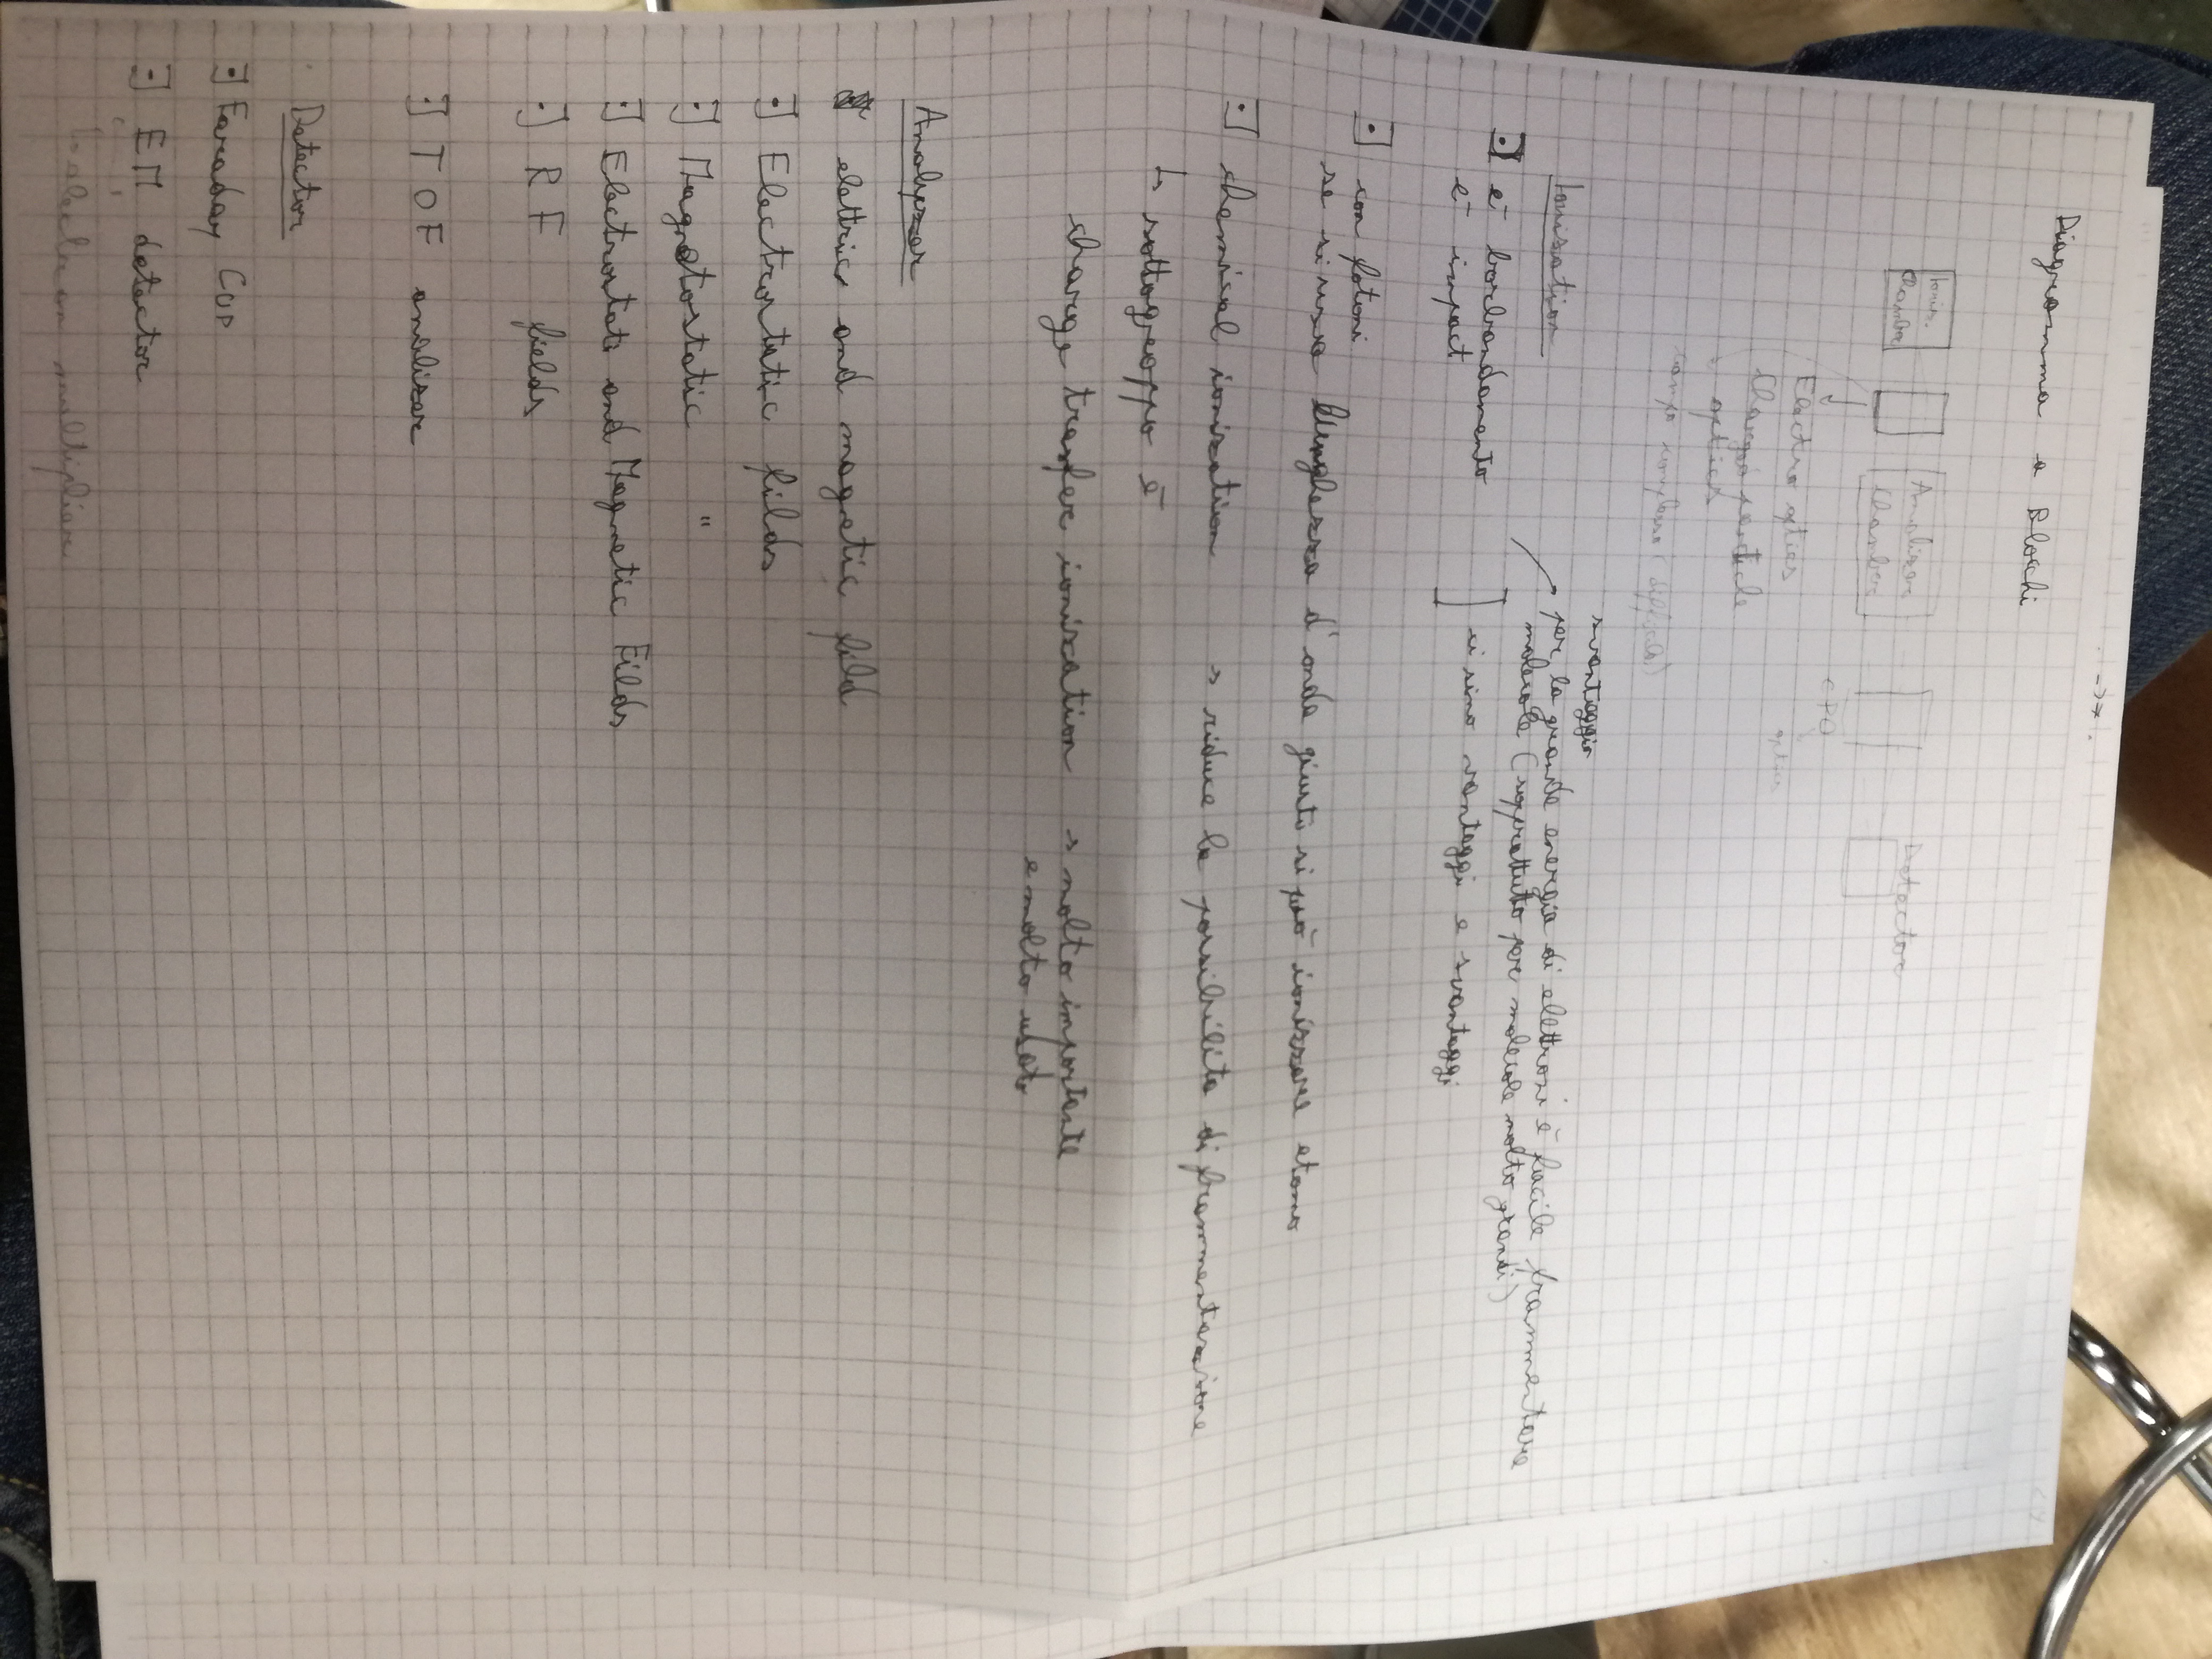 Diagramma a Blocchi
Ioniz.
Chamber
Analizer
Chamber
Detector
Electro optics
CPO
optics
Charged particle
optics
campo complesso (difficile)
svantaggio
Ionisation
per la grande energia di elettroni è facile frammentare
molecole (soprattutto per molecole molto grandi)
e⁻ borbandamento
e⁻ impact
ci sino vantaggi e svantaggi
con fotoni
se si usa lunghezza d'onda giusta si può ionizzare atomo
chemical ionization → riduce la possibilità di frammentazione
↳ sottogruppo è
charge transfer ionization → molto importante
e molto usato
Analyzer
elettric and magnetic field
Electrostatic fields
Magnetostatic "
Electrostatic and Magnetic Filds
RF fields
TOF analizer
Detector
Faraday Cup
EM detector
↳ electron multiplier